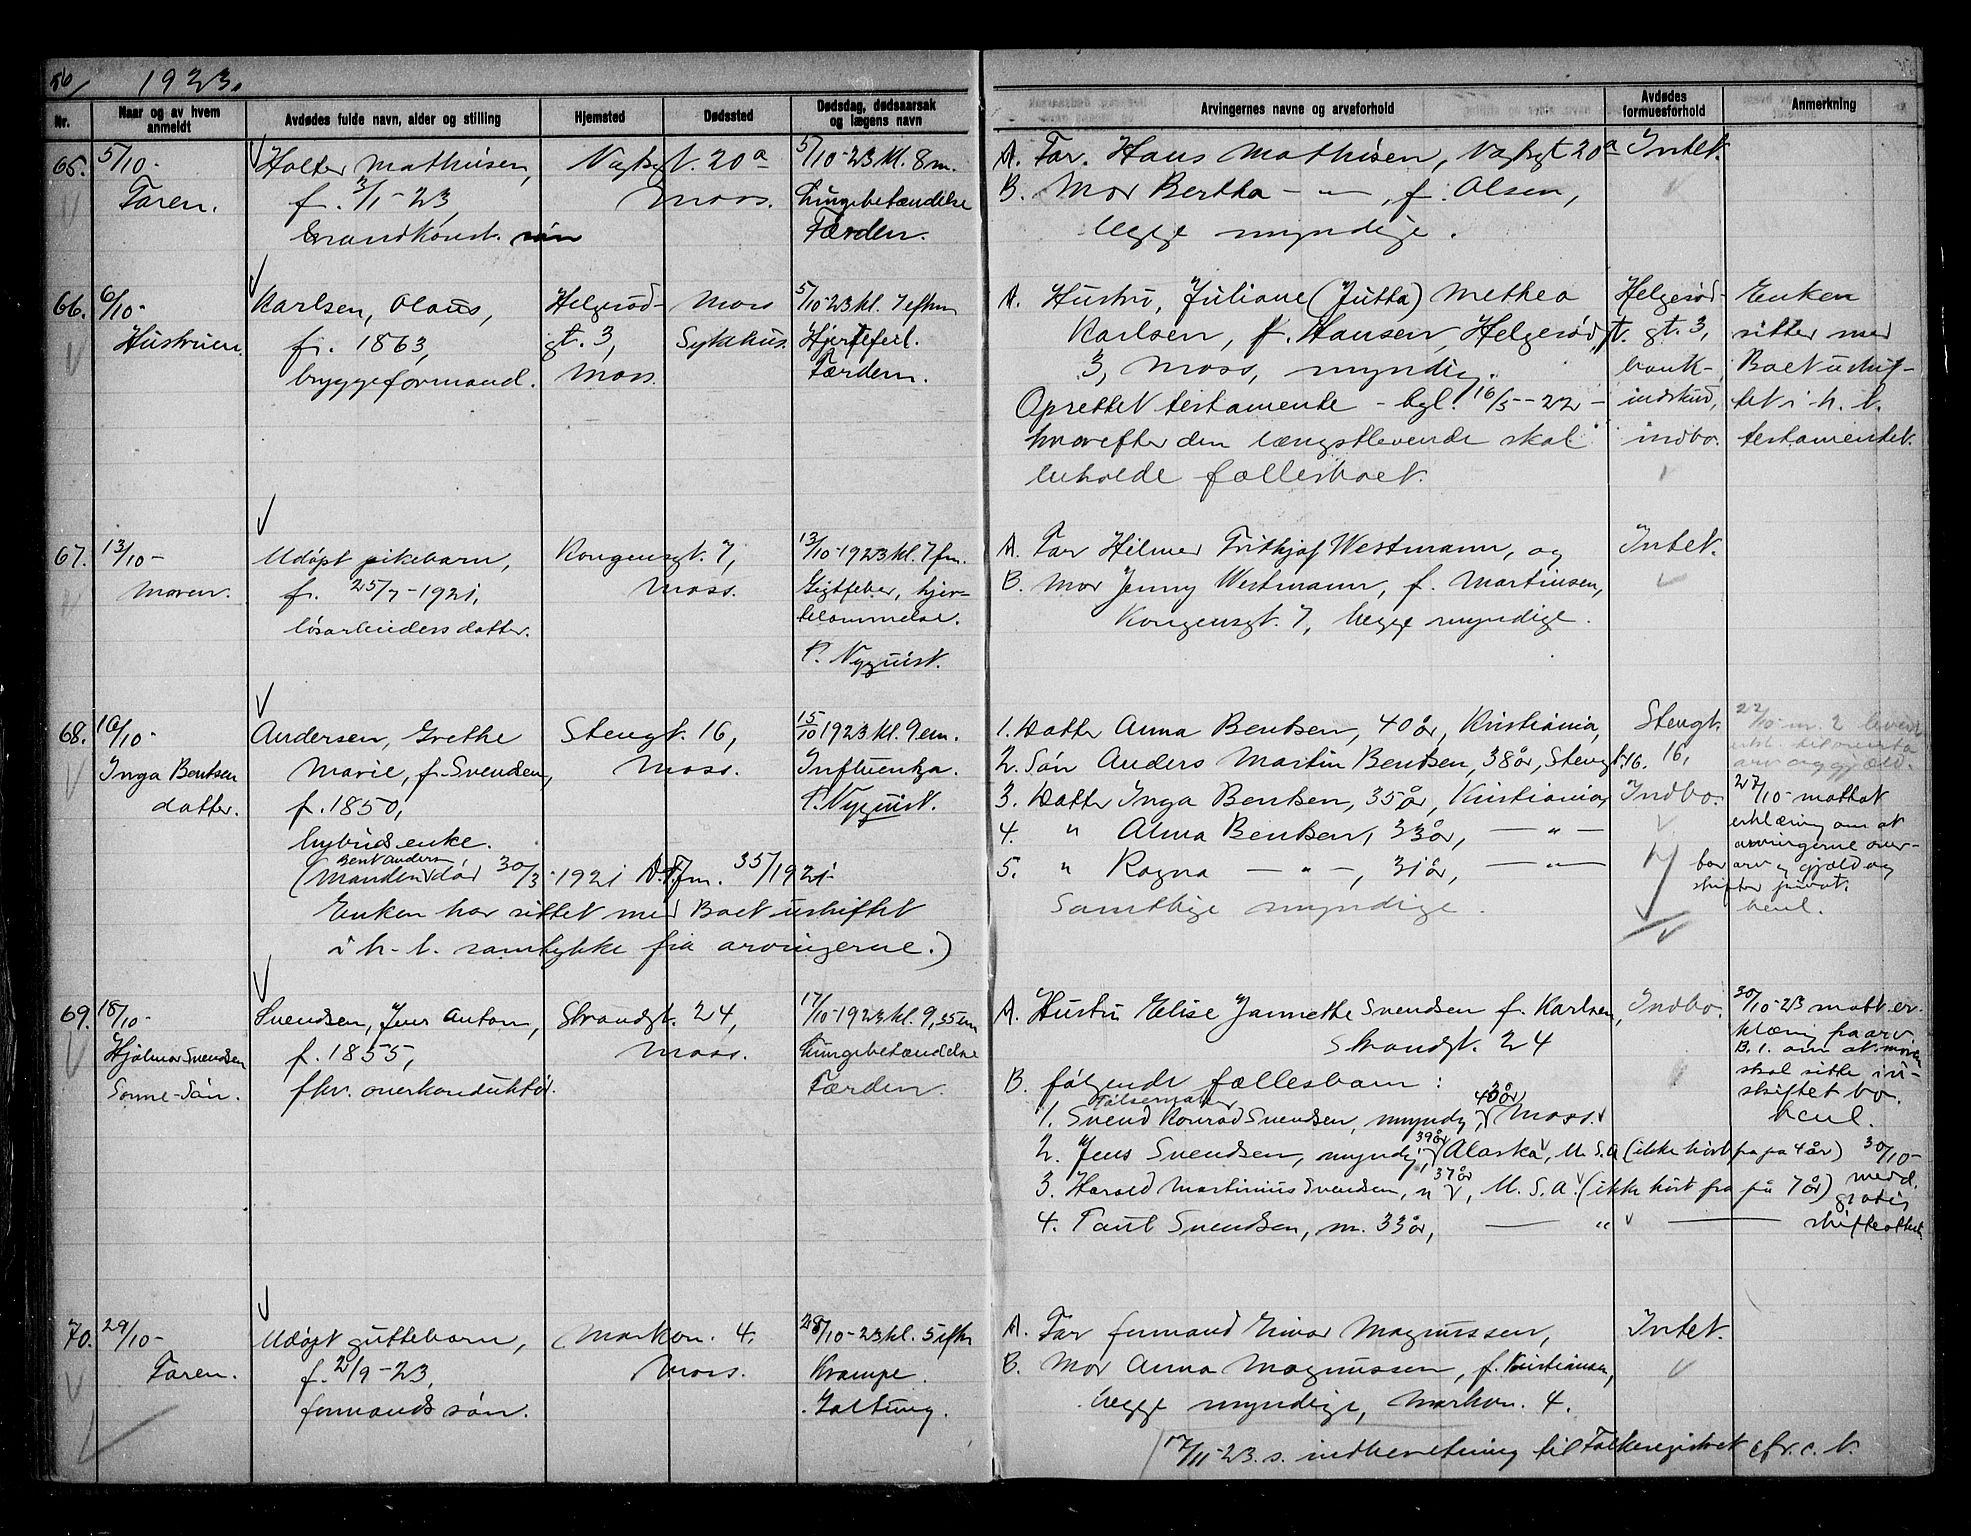 56
1923.
Nr.
Naar og av hvem anmeldt
Avdødes fulde navn, alder og stilling
Hjemsted
Dødssted
Dødsdag, dødsaarsak og lægens navn
Arvingernes navne og arveforhold
Avdødes formuesforhold
Anmerkning
65.
5/10-
Faren.
Holter Mathisen,
f. 3/1-23,
brandkonst. søn
Vogtsgt. 20a
Moss.
5/10-23 kl. 8 m.
Lungebetændelse
Færden.
A. Far. Hans Mathisen, Vogtsgt 20a
B. Mor Bertha — " — , f. Olsen,
begge myndige.
Intet.
66.
6/10-
Hustruen.
Karlsen, Olaus,
f. 1863,
bryggeformand.
Helgerød-
gt. 3,
Moss.
Moss
Sykehus.
5/10-23 kl. 7 efterm
Hjertefeil.
Færden.
A. Hustru, Juliane (Jutta) Methea
Karlsen, f. Hansen, Helgerødgt.
3, Moss, myndig.
Oprettet testamente - bgl. 16/5-22-
hvorefter den længstlevende skal
beholde fællesboet.
Helgerød-
gt. 3,
bank-
indskud,
indbo.
Enken
sitter med
Boet uskif-
tet i h. t.
testamentet.
67.
13/10-
Moren.
Udøpt pikebarn,
f. 25/7-1921,
løsarbeiders datter.
Kongensgt. 7,
Moss.
13/10-1923 kl. 7 fm.
Gigtfeber, hjer-
telammelse.
P. Nyquist.
A. Far Hilmer Frithjof Westmann, og
B. Mor Jenny Westmann, f. Martinsen,
Kongensgt. 7, begge myndige.
Intet.
68.
16/10-
Inga Bentsen
datter.
Andersen, Grethe
Marie, f. Svendsen,
f. 1850,
hybridsenke.
Bent Andersen,
(Manden død 30/3-1921 D.fm. 35/1921-
Enken har sittet med Boet uskiftet
i h-t. samtykke fra arvingerne.)
Stengt. 16,
Moss.
15/10 1923 kl. 9 em.
Influenza.
P. Nyquist.
1. Datter Anna Bentsen, 40 år, Kristiania,
2. Søn Anders Martin Bentsen, 38 år, Stengt. 16.
3. Datter Inga Bentsen, 35 år, Kristiania,
4. " Alma Bentsen, 33 år, — " —
5. " Ragna — " — , 31 år, — " —
Samtlige myndige.
Stengt.
16,
Indbo.
27/10- mottat
erklæring om at
arvingerne over-
tar arv og gjæld og
skifter privat.
69.
18/10-
Hjalmar Svendsen
Sønne-Søn.
Svendsen, Jens Anton,
f. 1855,
fhv. overkonduktør.
Strandgt. 24,
Moss.
17/10-1923 kl. 9,35 em
Lungebetændelse
Færden.
A. Hustru Elise Jannette Svendsen f. Karlsen,
Strandgt. 24
B. følgende fællesbarn:
Pølsemaker 43 år,
1. Svend Konrad Svendsen, myndig, Moss.
39 år
2. Jens Svendsen, myndig, Alaska, U. S. A (ikke hørt fra på 4 år)
37 år
3. Harald Martinius Svendsen, " , U. S. A. (ikke hørt fra på 7 år)
4. Paul Svendsen, m. 33 år, — " —
Indbo.
30/10-23 mott. er-
klæring fra arv.
B. 1. om at moren
skal sitte i u-
skiftet bo.
30/10-
medd.
gratis
skifteattest
70.
29/10-
Faren.
Udøpt guttebarn,
f. 2/9-23,
formands søn.
Markvn. 4.
Moss.
28/10-23 kl. 5 efter
Krampe.
Zaltung.
A. Far formand Einar Magnussen,
B. Mor Anna Magnussen, f. Kristiansen,
begge myndige, Markvn. 4.
Intet.
17/11-23 s. indberetning til Folkeregistret efr. c. t.